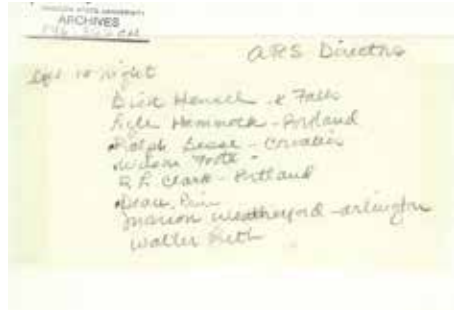 OREGON STATE UNIVERSITY
ARCHIVES
ARS Directors
left to right
Dick Hensel - K Falls
Lyle Hammock - Portland
Ralph Besse - Corvallis
Wilson Foote "
R. L. Clark - Portland
Dean
Marion Weatherford - Arlington
Walter